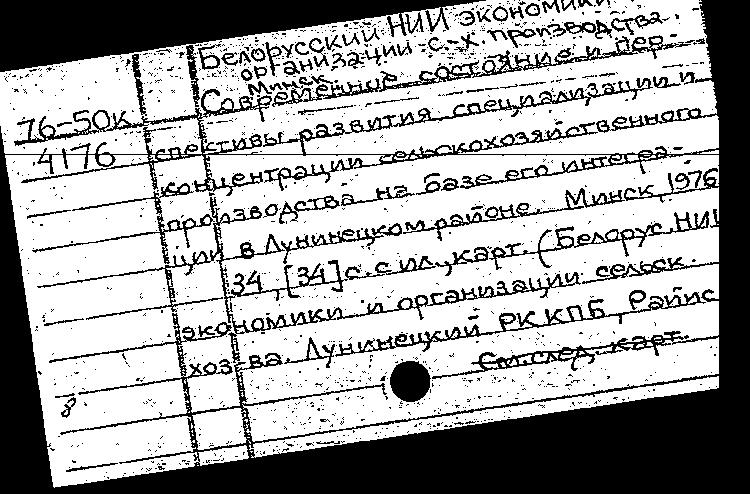 Белорусский НИИ экономики
организации с.-х. производства.
Минск.
Современное состояние и пер-
76-50к
спективы развития специализации и
4176
концентрации сельскохозяйственного
производства на базе его интегра-
ции в Лунинецком районе. Минск, 1976
34, [34] с. с ил., карт. (Белорус. НИИ
экономики и организации сельск.
хоз-ва. Лунинецкий РК КПБ, Райис
См. след. карт.
8